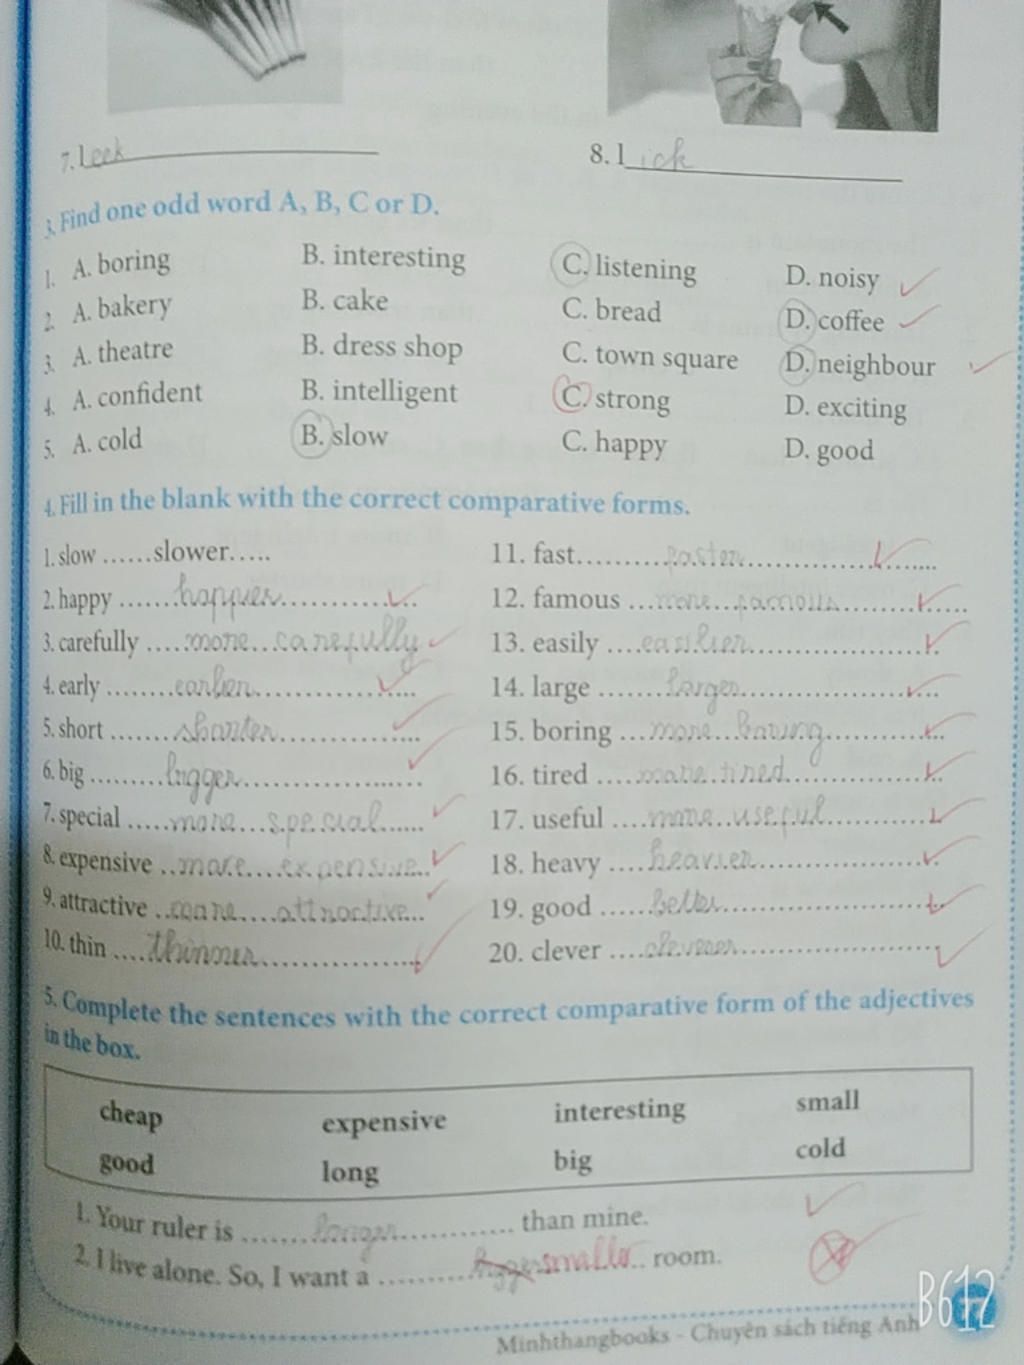 7. leek
8. lick
3. Find one odd word A, B, C or D.
1. A. boring B. interesting C. listening D. noisy
2. A. bakery B. cake C. bread D. coffee
3. A. theatre B. dress shop C. town square D. neighbour
4. A. confident B. intelligent C. strong D. exciting
5. A. cold B. slow C. happy D. good
4. Fill in the blank with the correct comparative forms.
1. slow ......slower.....
2. happy .......happier............
3. carefully .....more...carefully
4. early ........earlier............
5. short .......shorter............
6. big .........bigger................
7. special .....more...special......
8. expensive ..more....expensive..
9. attractive ..more....attractive...
10. thin ....thinner..............
11. fast.........faster....................
12. famous ...more...famous..............
13. easily ....easilier...................
14. large .......larger....................
15. boring ...more..boring............
16. tired ....more.tired..............
17. useful ....more..useful............
18. heavy ....heavier..................
19. good ......better...................
20. clever ....cleverer....................
5. Complete the sentences with the correct comparative form of the adjectives
in the box.
cheap expensive interesting small
good long big cold
1. Your ruler is .......longer............ than mine.
2. I live alone. So, I want a ......... bigger smaller.. room.
Minhthangbooks - Chuyên sách tiếng Anh
B612